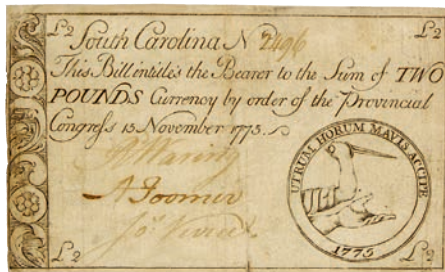 £2 South Carolina N 2496 £2
This Bill intitles the Bearer to the Sum of TWO
POUNDS Currency by order of the Provincial
Congress 15 November 1775.
UTRUM HORUM MAVIS ACCIPE
1775
£2 £2